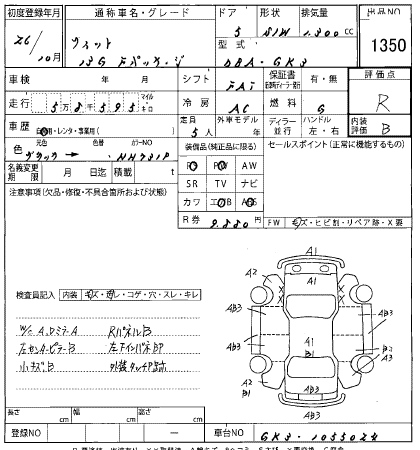 初度登録年月 通称車名・グレード ドア 形状 排気量 出品NO
26/10月 フィット 5 S/W 1,300cc 1350
13G Fパッケージ 型式 DBA-GK3
車検 年 月 シフト FAT 保証書 有・無 評価点
走行 58595 マイル キロ 冷房 AC 燃料 G R
定員 5人 外車モデル 年 ディーラー 並行 ハンドル 左・右 内装評価 B
車歴 自家用・レンタ・事業用( )
色 元色 色替 カラーNO 装備品(純正品に限る) セールスポイント(正常に機能するもの)
ブラック NH731P PS PW AW
名義変更期限 月 日迄 積載 t SR TV ナビ
注意事項(欠品・修復・不具合箇所および状態) カワ エアB ABS
R券 9.880円 FW キズ・ヒビ割・リペア跡・X要
検査員記入 内装 キズ・汚れ・コゲ・穴・スレ・キレ
W/C A.DミラーA RパネルB
左センターピラーB 左下インパネBP
小キズB 外装タッチP跡ホ
A1
A2 A3
AB3 AB3
A1
B1
AB3 B2
A2 A3
B1 A1
AB3
長さ cm 幅 cm 高さ cm
登録NO ー 車台NO GK3-1055024